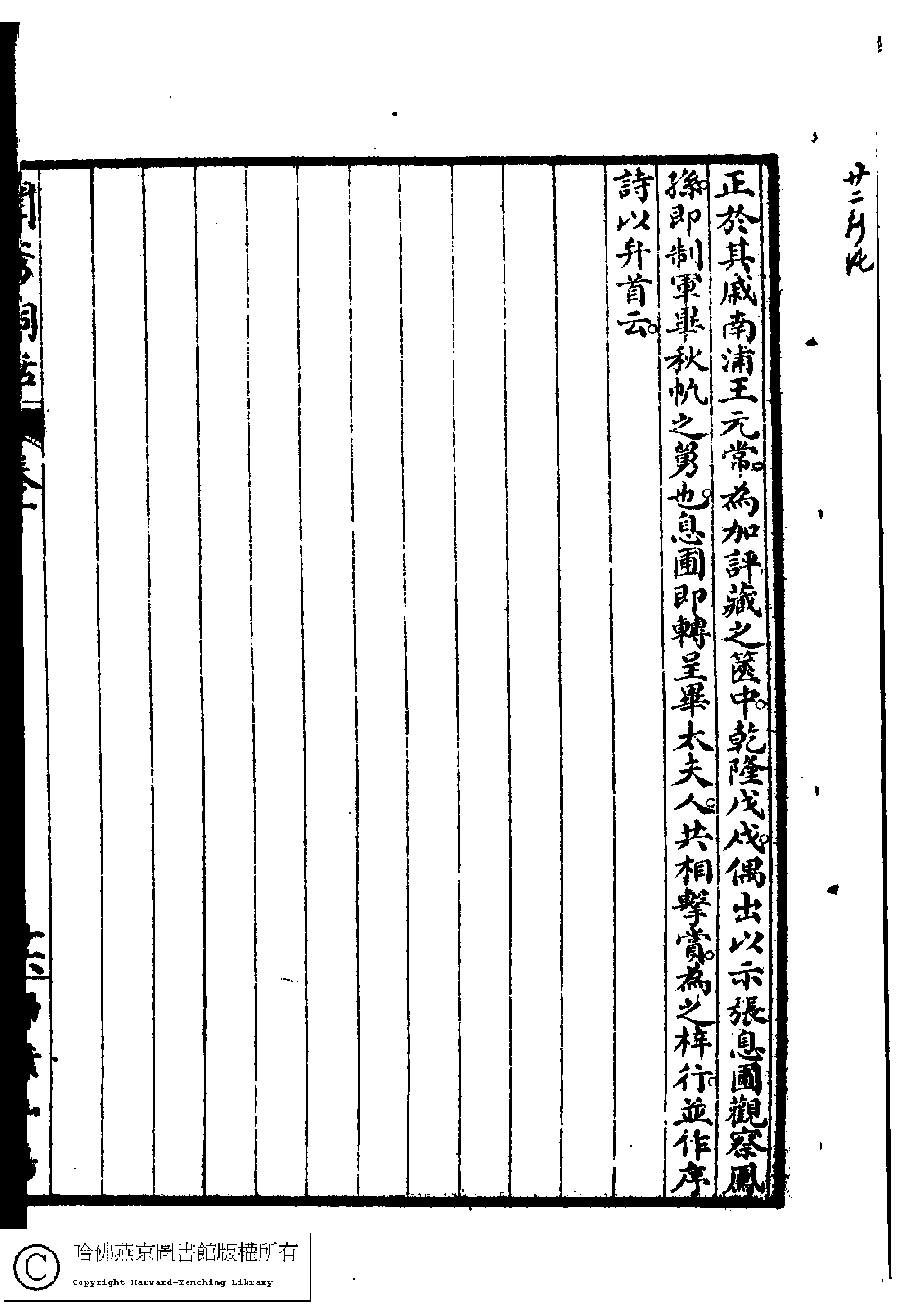 正於其戚南浦王元常。為加評藏之篋中。乾隆戊戌。偶出以示張息圃觀察鳳
孫。即制軍畢秋帆之舅也。息圃即轉呈畢太夫人。共相擊賞。為之梓行。並作序
詩以弁首云。
閨秀詞話
卷一
哈佛燕京圖書館版權所有
Copyright Harvard-Yenching Library